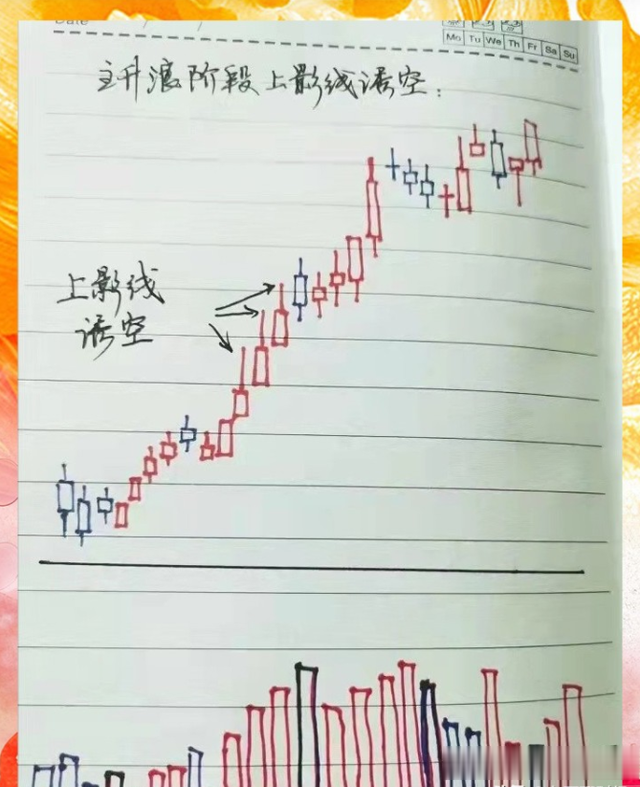 Date
Mo Tu We Th Fr Sa Su
主升浪阶段上影线诱空:
上影线
诱空